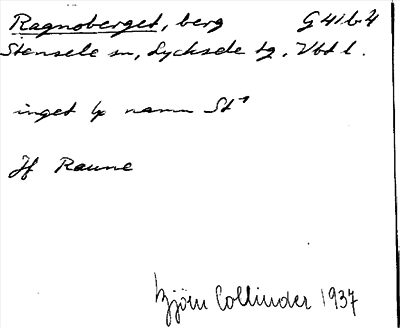 Ragnoberget, berg G 41 b 4
Stensele sn, Lycksele tg, Vbt l.
inget lp namn St¹
Jf Raune
Björn Collinder 1937